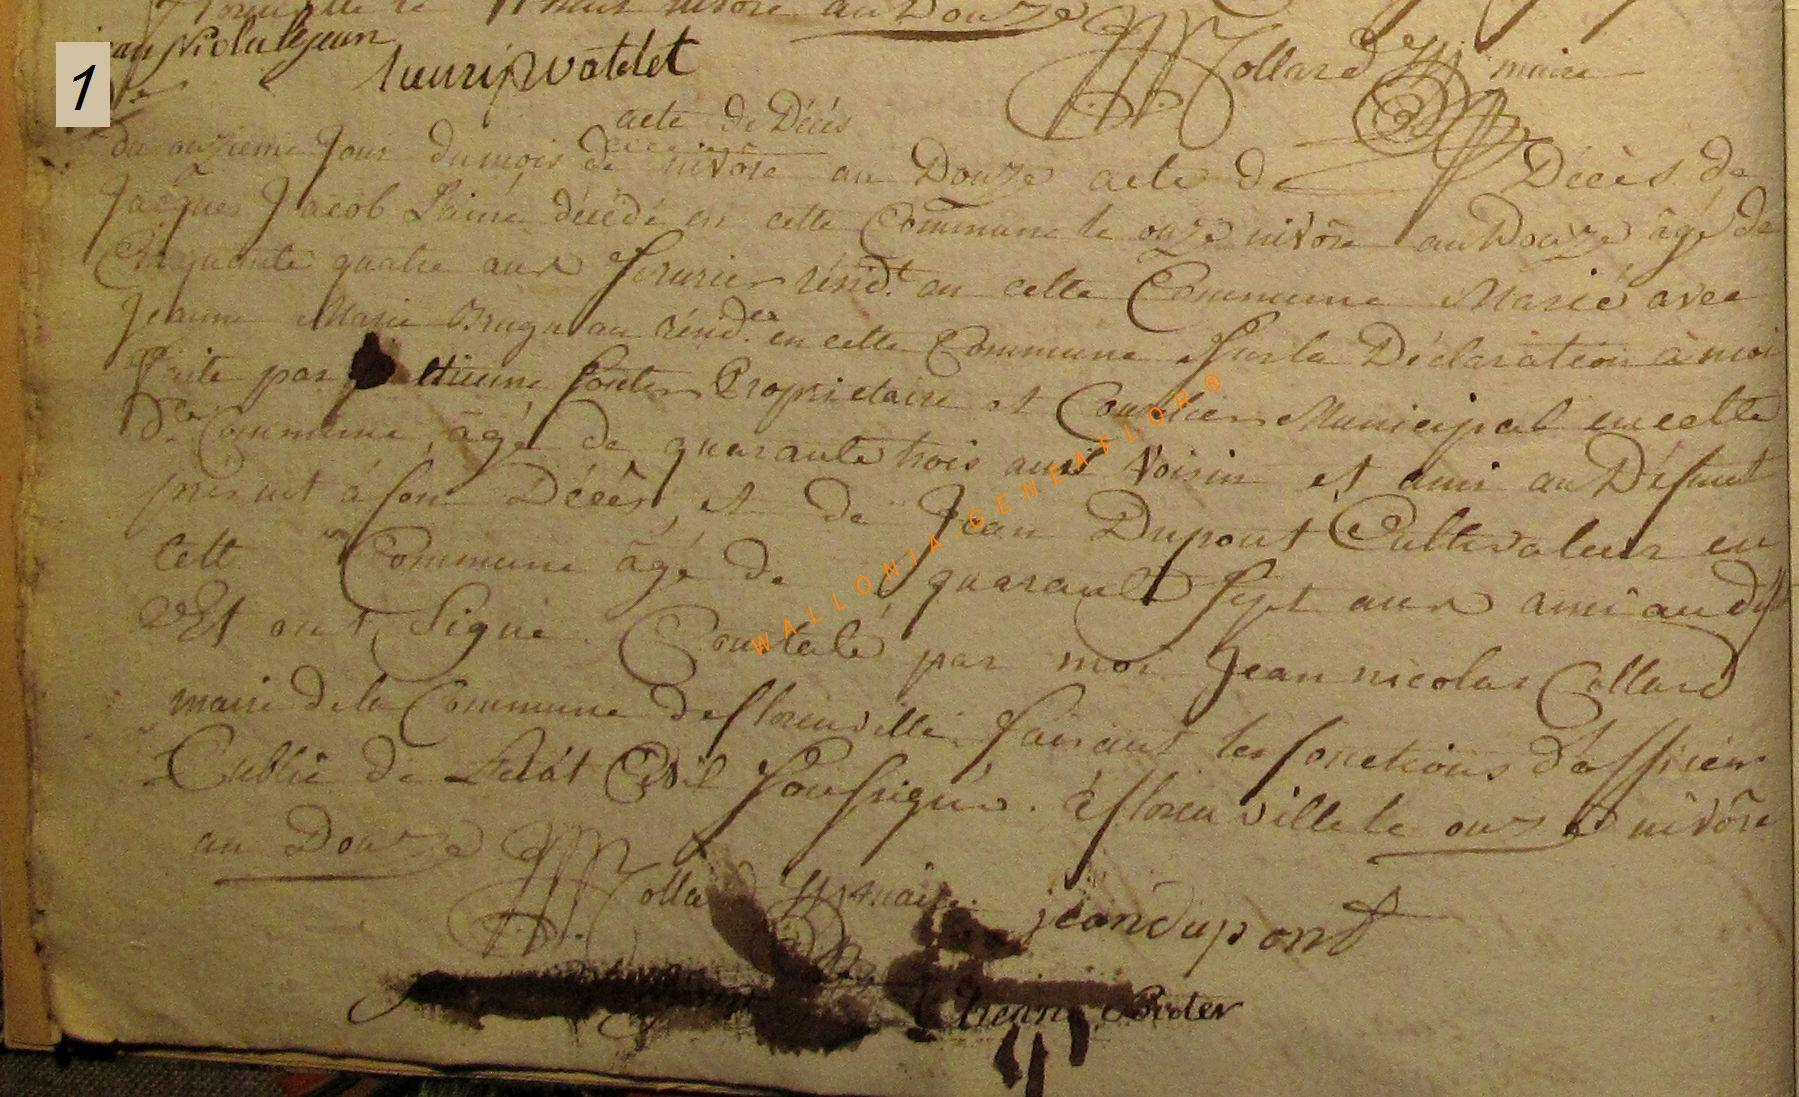 florenville le onze nivôse an Douze
jean Nicola lejeun
henri watelet
Collard maire
1
acte de Décés
du onzieme Jour du mois de nivôse an Douze acte de Décès de
Jacques Jacob L'ainé décédé en cette Commune le onze nivôse an Douze âgé de
Cinquante quatre ans serurier résidt. en cette Commune Marié avec
Jeanne Marie résid.te en cette Commune Sur la Déclaration à moi
faite par Etienne Propriétaire et Conseiller Municipal en cette
d.te Commune, âgé de quarante trois ans Voisin et ami au Défunt
présent à son Décès, et de Jean Dupont Cultivateur en
cette Commune âgé de quarante Sept ans ami au dft
Et ont Signé. Constaté par moi Jean nicolas Collard
maire de la Commune de florenville faisant les fonctions d'officier
Public de L'etat Civil Soussigné. à florenville le onze nivôse
an Douze
Collard maire
jean dupont
Etienne
WALLONIA GENEAFLOR®